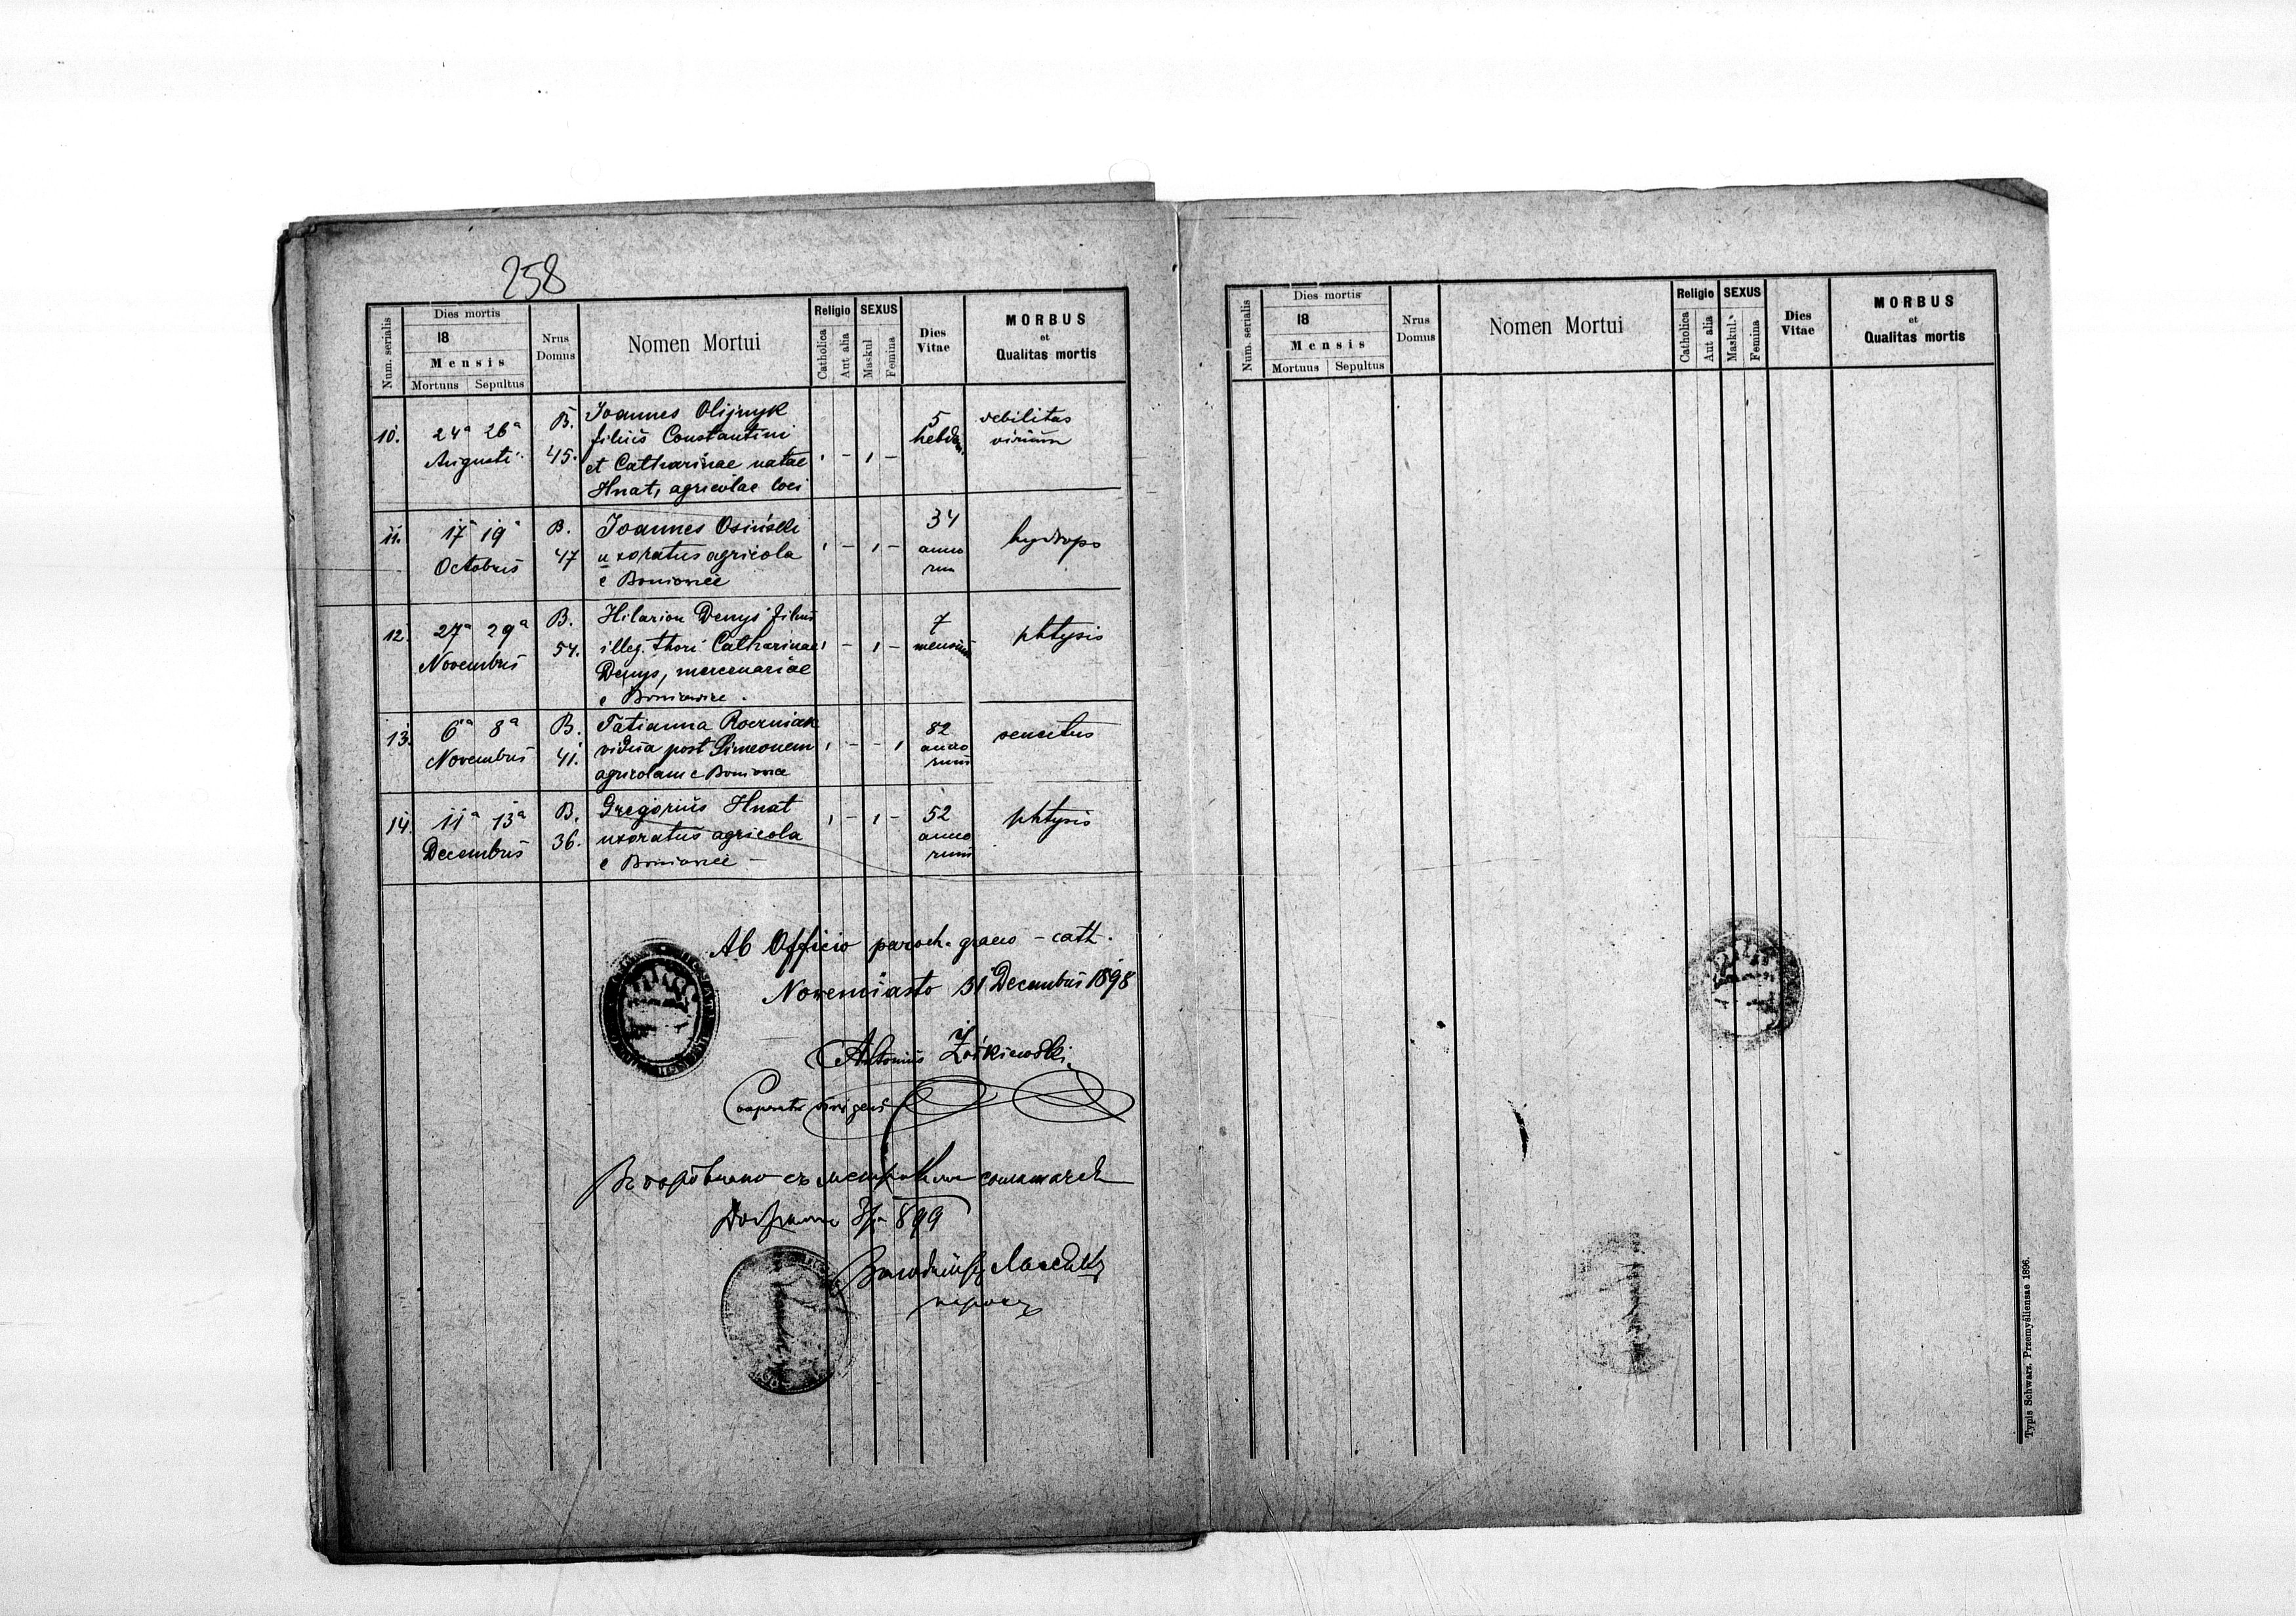 258
Num. serialis
Dies mortis
18
Mensis
Mortuus Sepultus
Nrus Domus
Nomen Mortui
Religio
Catholica
Aut alia
SEXUS
Maskul.
Femina
Dies Vitae
MORBUS
et
Qualitas mortis
10. 24ª 26ª Augusti B. 45.
Joannes Olijnyk
filius Constantini
et Catharinae natae
Hnat, agricolae loci
5 hebdom.
debilitas
virium
11. 17ª 19ª Octobris B. 47
Joannes Osiński
uxoratus agricola
e Boniowice
34
anno
rum
hydrops
12. 27ª 29ª Novembris B. 54.
Hilarion Denys filius
illeg. thori Catharinae
Denys, mercenariae
e Boniowice.
7
mensium
phtysis
13. 6ª 8ª Novembris B. 41.
Tatianna
vidua post Simeonem
agricolam e Boniowice
82
anno
rum
senectus
14. 11ª 13ª Decembris B. 36.
Gregorius Hnat
uxoratus agricola
e Boniowice
52
anno
rum
phtysis
Ab Officio paroch. graeco-cath.
Novemiasto 31 Decembris 1898
Antonius
Cooperator
899
Num. serialis
Dies mortis
18
Mensis
Mortuus Sepultus
Nrus Domus
Nomen Mortui
Religio
Catholica
Aut alia
SEXUS
Maskul.
Femina
Dies Vitae
MORBUS
et
Qualitas mortis
Typis Schwarz. Przemyśliensae 1896.